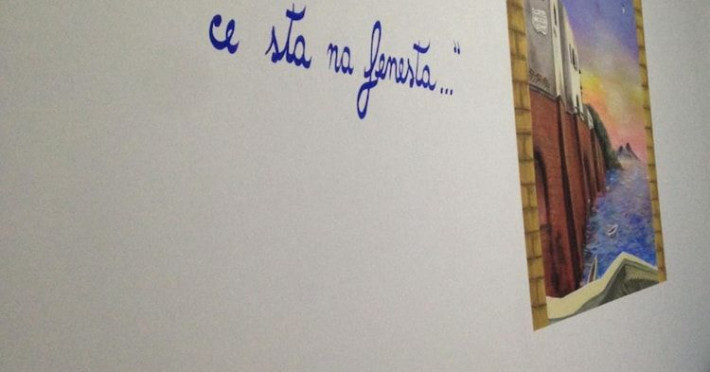 ce sta na fenesta..."